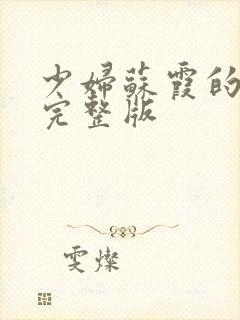 少婦蘇霞的
完整版
雯燦